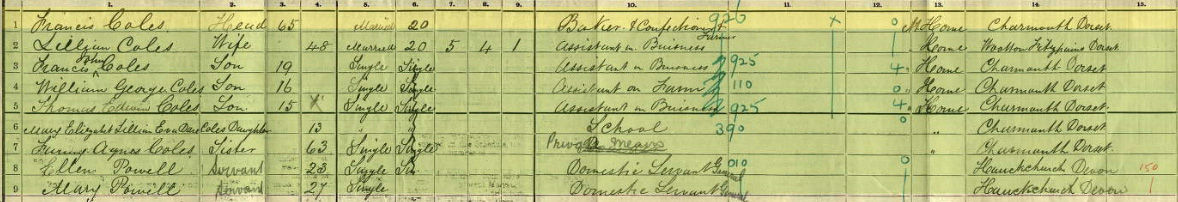 1. 2. 3. 4. 5. 6. 7. 8. 9. 10. 11. 12. 13. 14. 15.
1 Francis Coles Head 65 Married 20 Baker & Confectioner Farmer 926 X 0 Home Charmouth Dorset
2 Lillian Coles Wife 48 Married 20 5 4 1 Assistant in Buisness Home Wootton Fitzpaine Dorset
3 Francis John Coles Son 19 Single Single Assistant in Buisness 925 4 Home Charmouth Dorset
4 William George Coles Son 16 Single Single Assistant on Farm 110 0 Home Charmouth Dorset
5 Thomas Edwin Coles Son 15 X Single Single Assistant in Buisness 925 4 Home Charmouth Dorset
6 Mary Elizabet Lillian Eva Coles Daughter 13 " " School 390 0 " Charmouth Dorset
7 Agnes Coles Sister 63 Single Single Private Means " Charmouth Dorset
8 Ellen Powell Servant 28 Single Domestic Servant General 010 0 Hawkchurch Devon 150
9 Mary Powell Servant 27 Single Domestic Servant General 1 Hawkchurch Devon 1